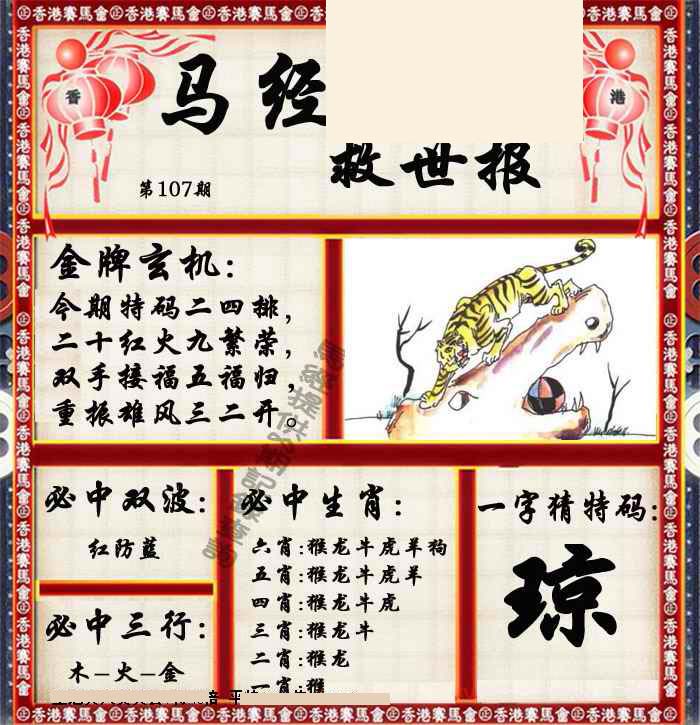 香港賽馬會
马经
救世报
香
港
第107期
金牌玄机:
今期特码二四排,
二十红火九繁荣,
双手接福五福归,
重振雄风三二开。
必中双波:
红防蓝
必中三行:
木–火–金
必中生肖:
六肖:猴龙牛虎羊狗
五肖:猴龙牛虎羊
四肖:猴龙牛虎
三肖:猴龙牛
二肖:猴龙
一肖:猴
一字猜特码:
琼